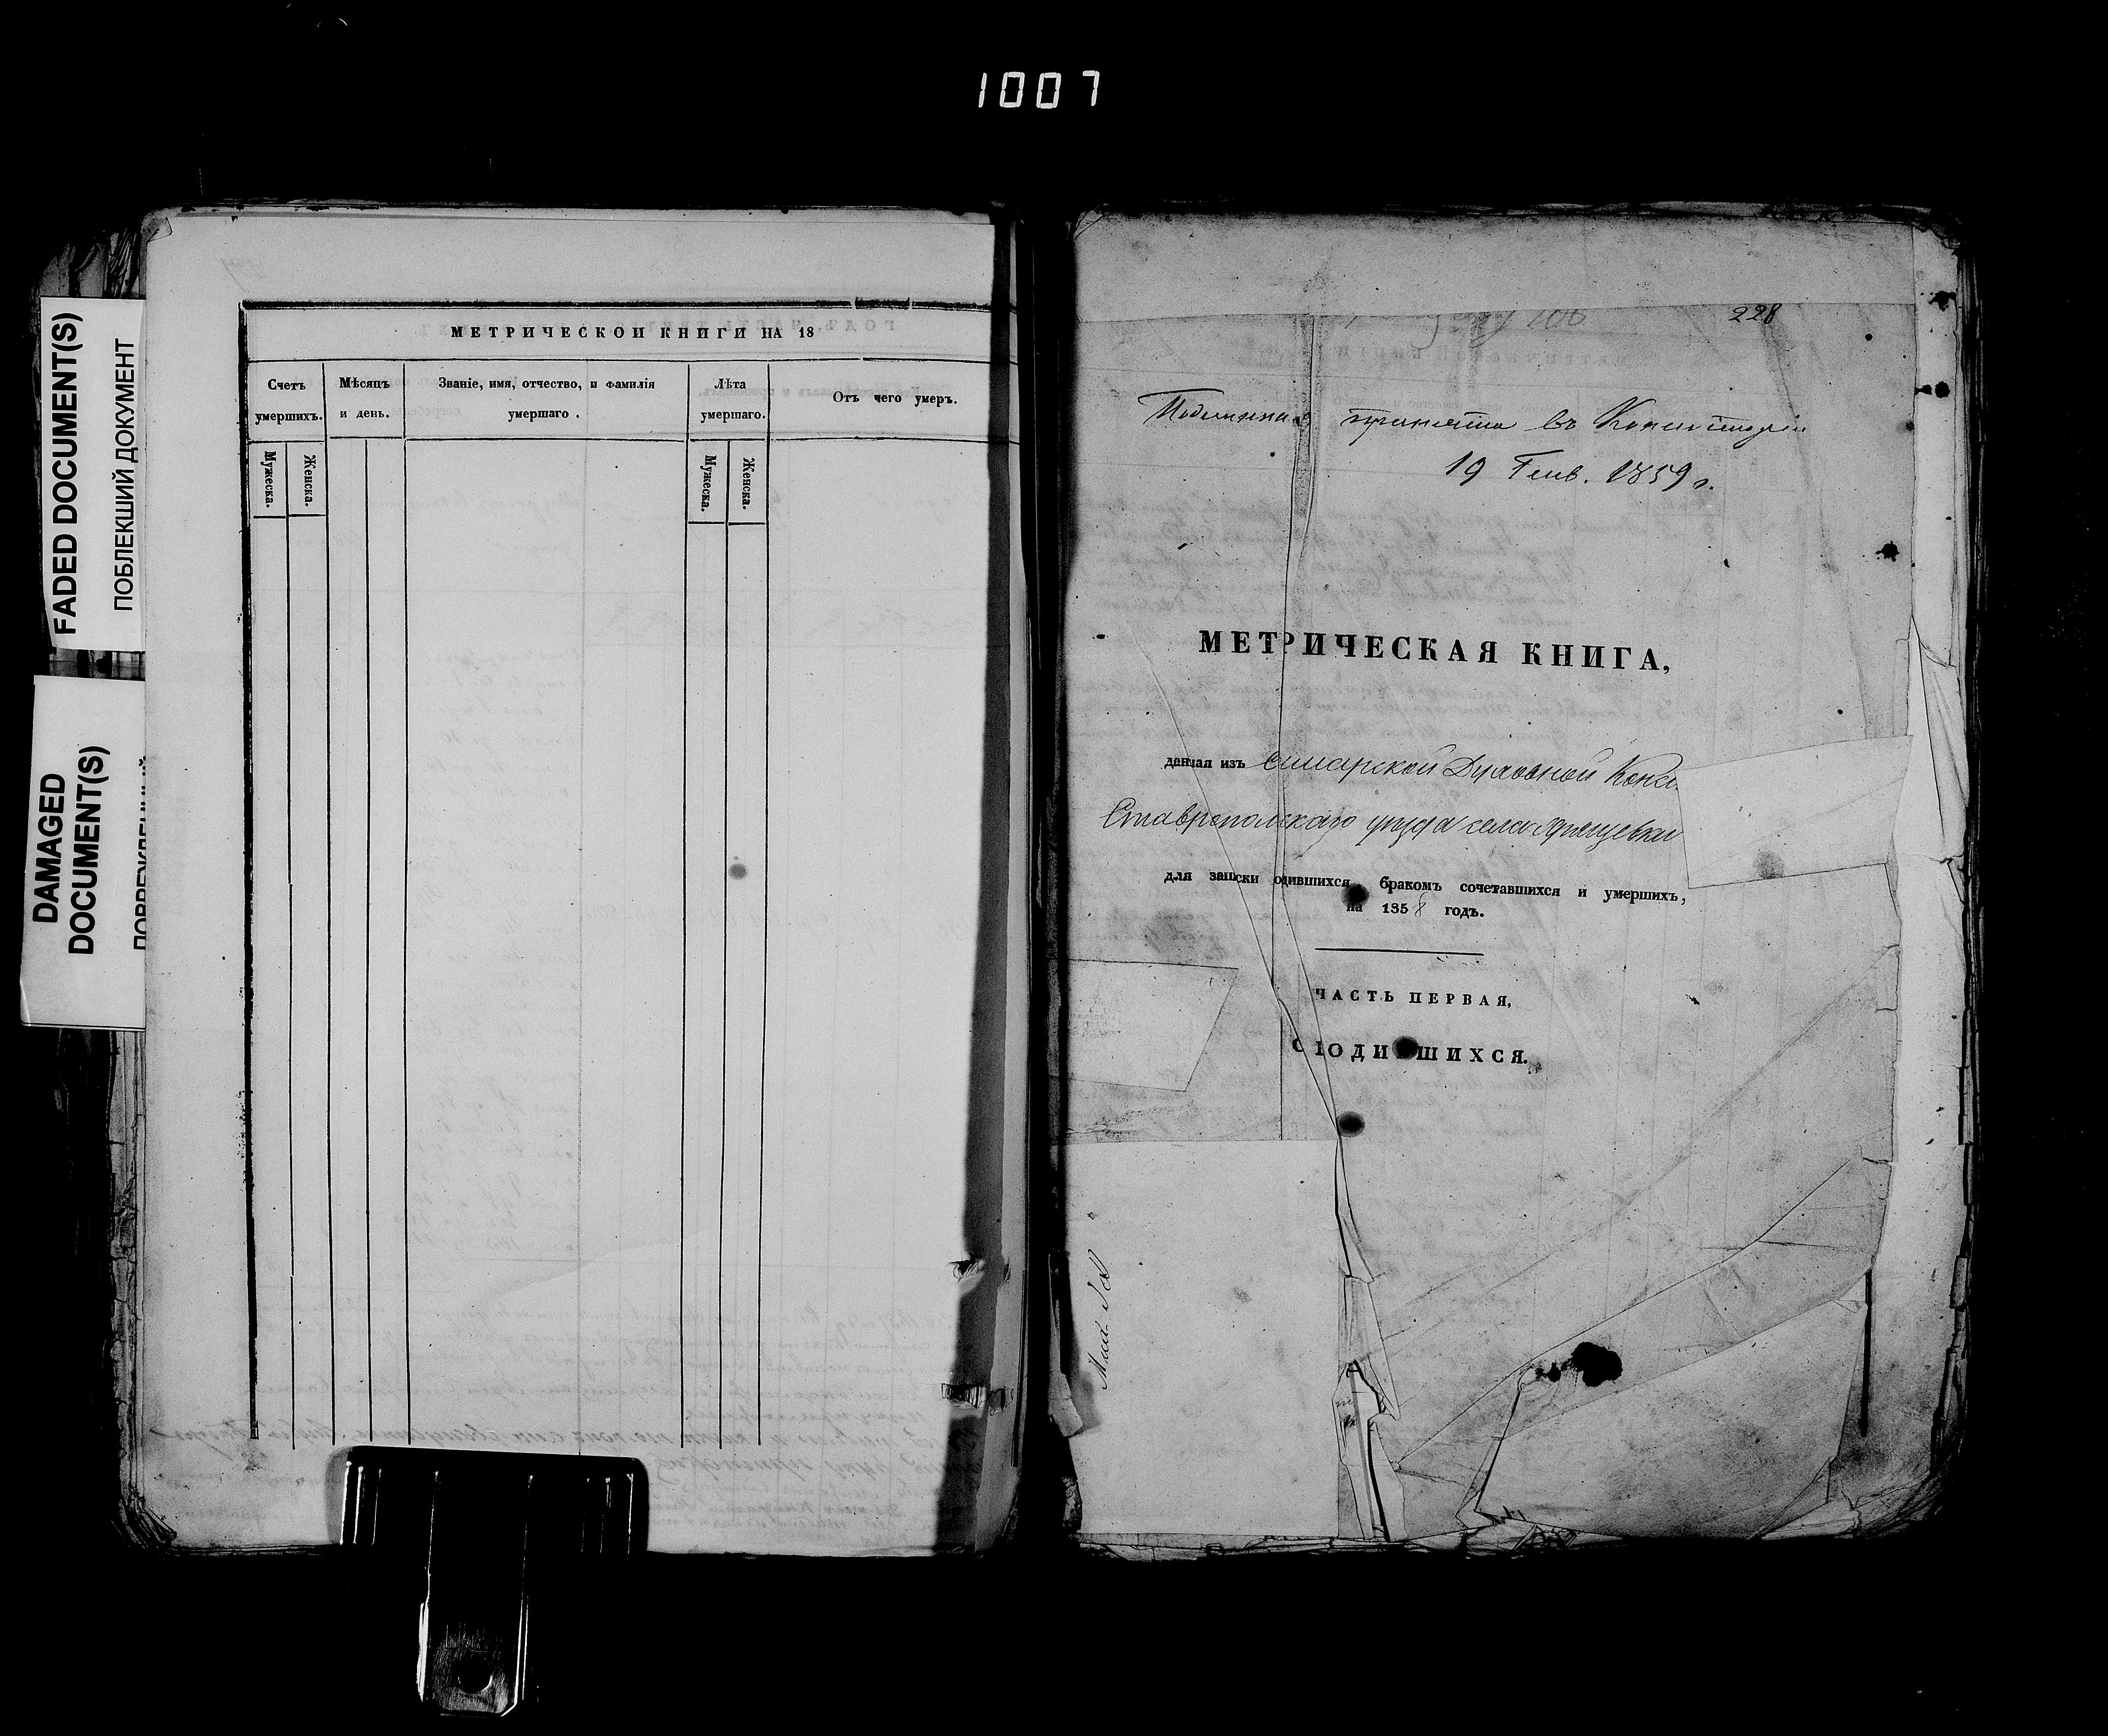 1007
FADED DOCUMENT(S)
ПОБЛЕКШИЙ ДОКУМЕНТ
DAMAGED
DOCUMENT(S)
МЕТРИЧЕСКОИ КНИГИ НА 18
Счетъ умершихъ.
Мѣсяцъ и день.
Званіе, имя, отчество, и фамилія умершаго.
Лѣта умершаго.
Отъ чего умеръ.
Мужеска.
Женска.
Мужеска.
Женска.
228
въ Консисторіи
19 Генв. 1859 г.
МЕТРИЧЕСКАЯ КНИГА,
данная изъ Самарской Духовной Конси
Ставропольскаго уѣзда села
для записки одившихся, бракомъ сочетавшихся и умершихъ,
на 1858 годъ.
ЧАСТЬ ПЕРВАЯ,
О ОДИ ШИХСЯ.